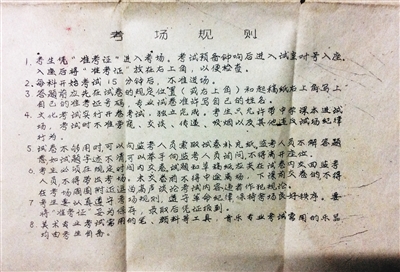 考场规则
1. 考生凭“准考证”进入考场。考试预备钟响后进入试室对号入座。
入座后将“准考证”放在右上角，以便检查。
2. 每科开始考试15分钟后，不准进场。
3. 答题前应先在试卷的规定位置（或右上角）和起稿纸右上角写上
自己的准考证号码，专业试卷准许写自己的姓名。
4. 文化考试实行开卷考试，独立完成。考生只允许带中学课本进试
场，考试时不准旁窥、交谈、传递、吸烟以及其他违反试场纪律
行为。
5. 试卷不够用时，可以向监考人员索取试卷补充纸，监考人员不解答题
意，如试题字迹不清可以举手向监考人员询问，不得离开座位。
6. 考生必须在规定时间内将试题和草稿纸连同试卷交回监考
人员不得带出考场。未交卷前不得中途离场，下课前交卷的不得
在考场周围逗留高声谈论考试内容，违者作犯规论。
7. 考生要认真遵守考场规则、遵守革命纪律，保持考场良好秩序。要
将“准考证”妥为保存，录取后凭证报到。
8. 美术专业考试常用的笔、颜料等工具，音乐专业考试常用的乐器
均由考生自备。